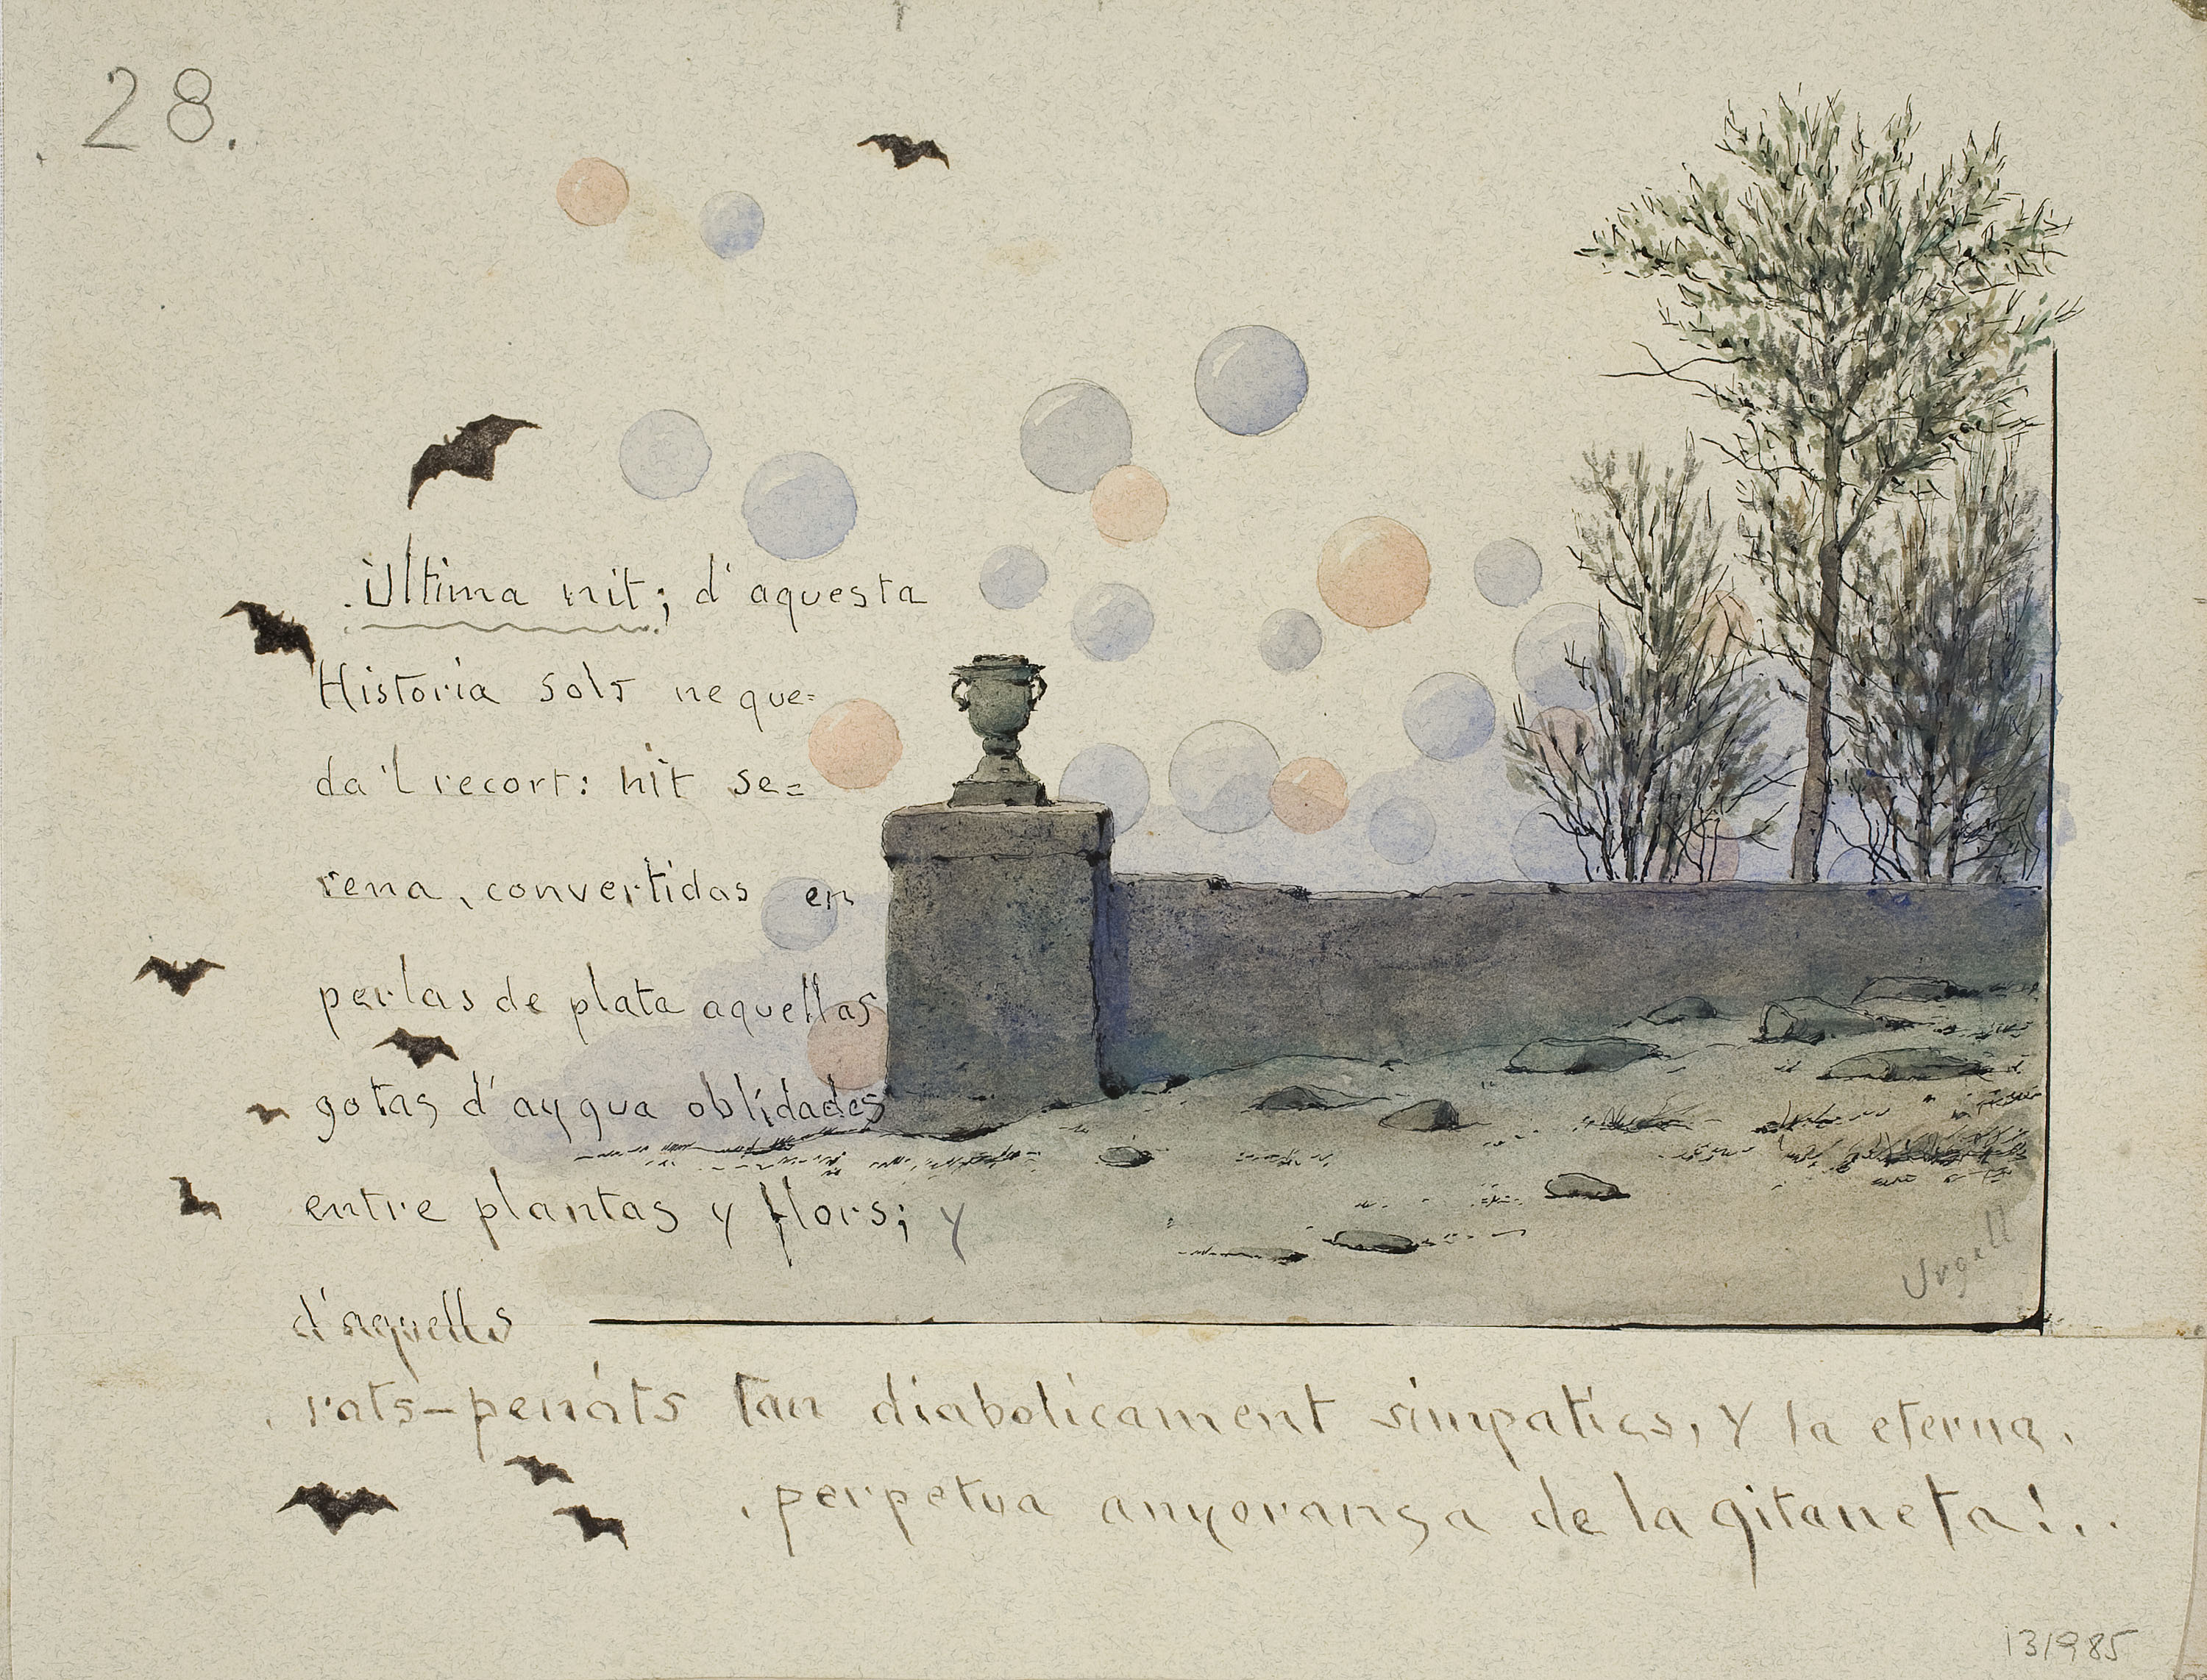 28.
Ultima nit; d'aquesta
Historia sols ne que=
da'l recort: nit se=
rena, convertidas en
perlas de plata aquellas
gotas d'aygua oblidades
entre plantas y flors; y
d'aquells
rats-penáts tan diabolicament simpatics, y la eterna,
perpetua anyoransa de la gitaneta!..
Urgell
131985